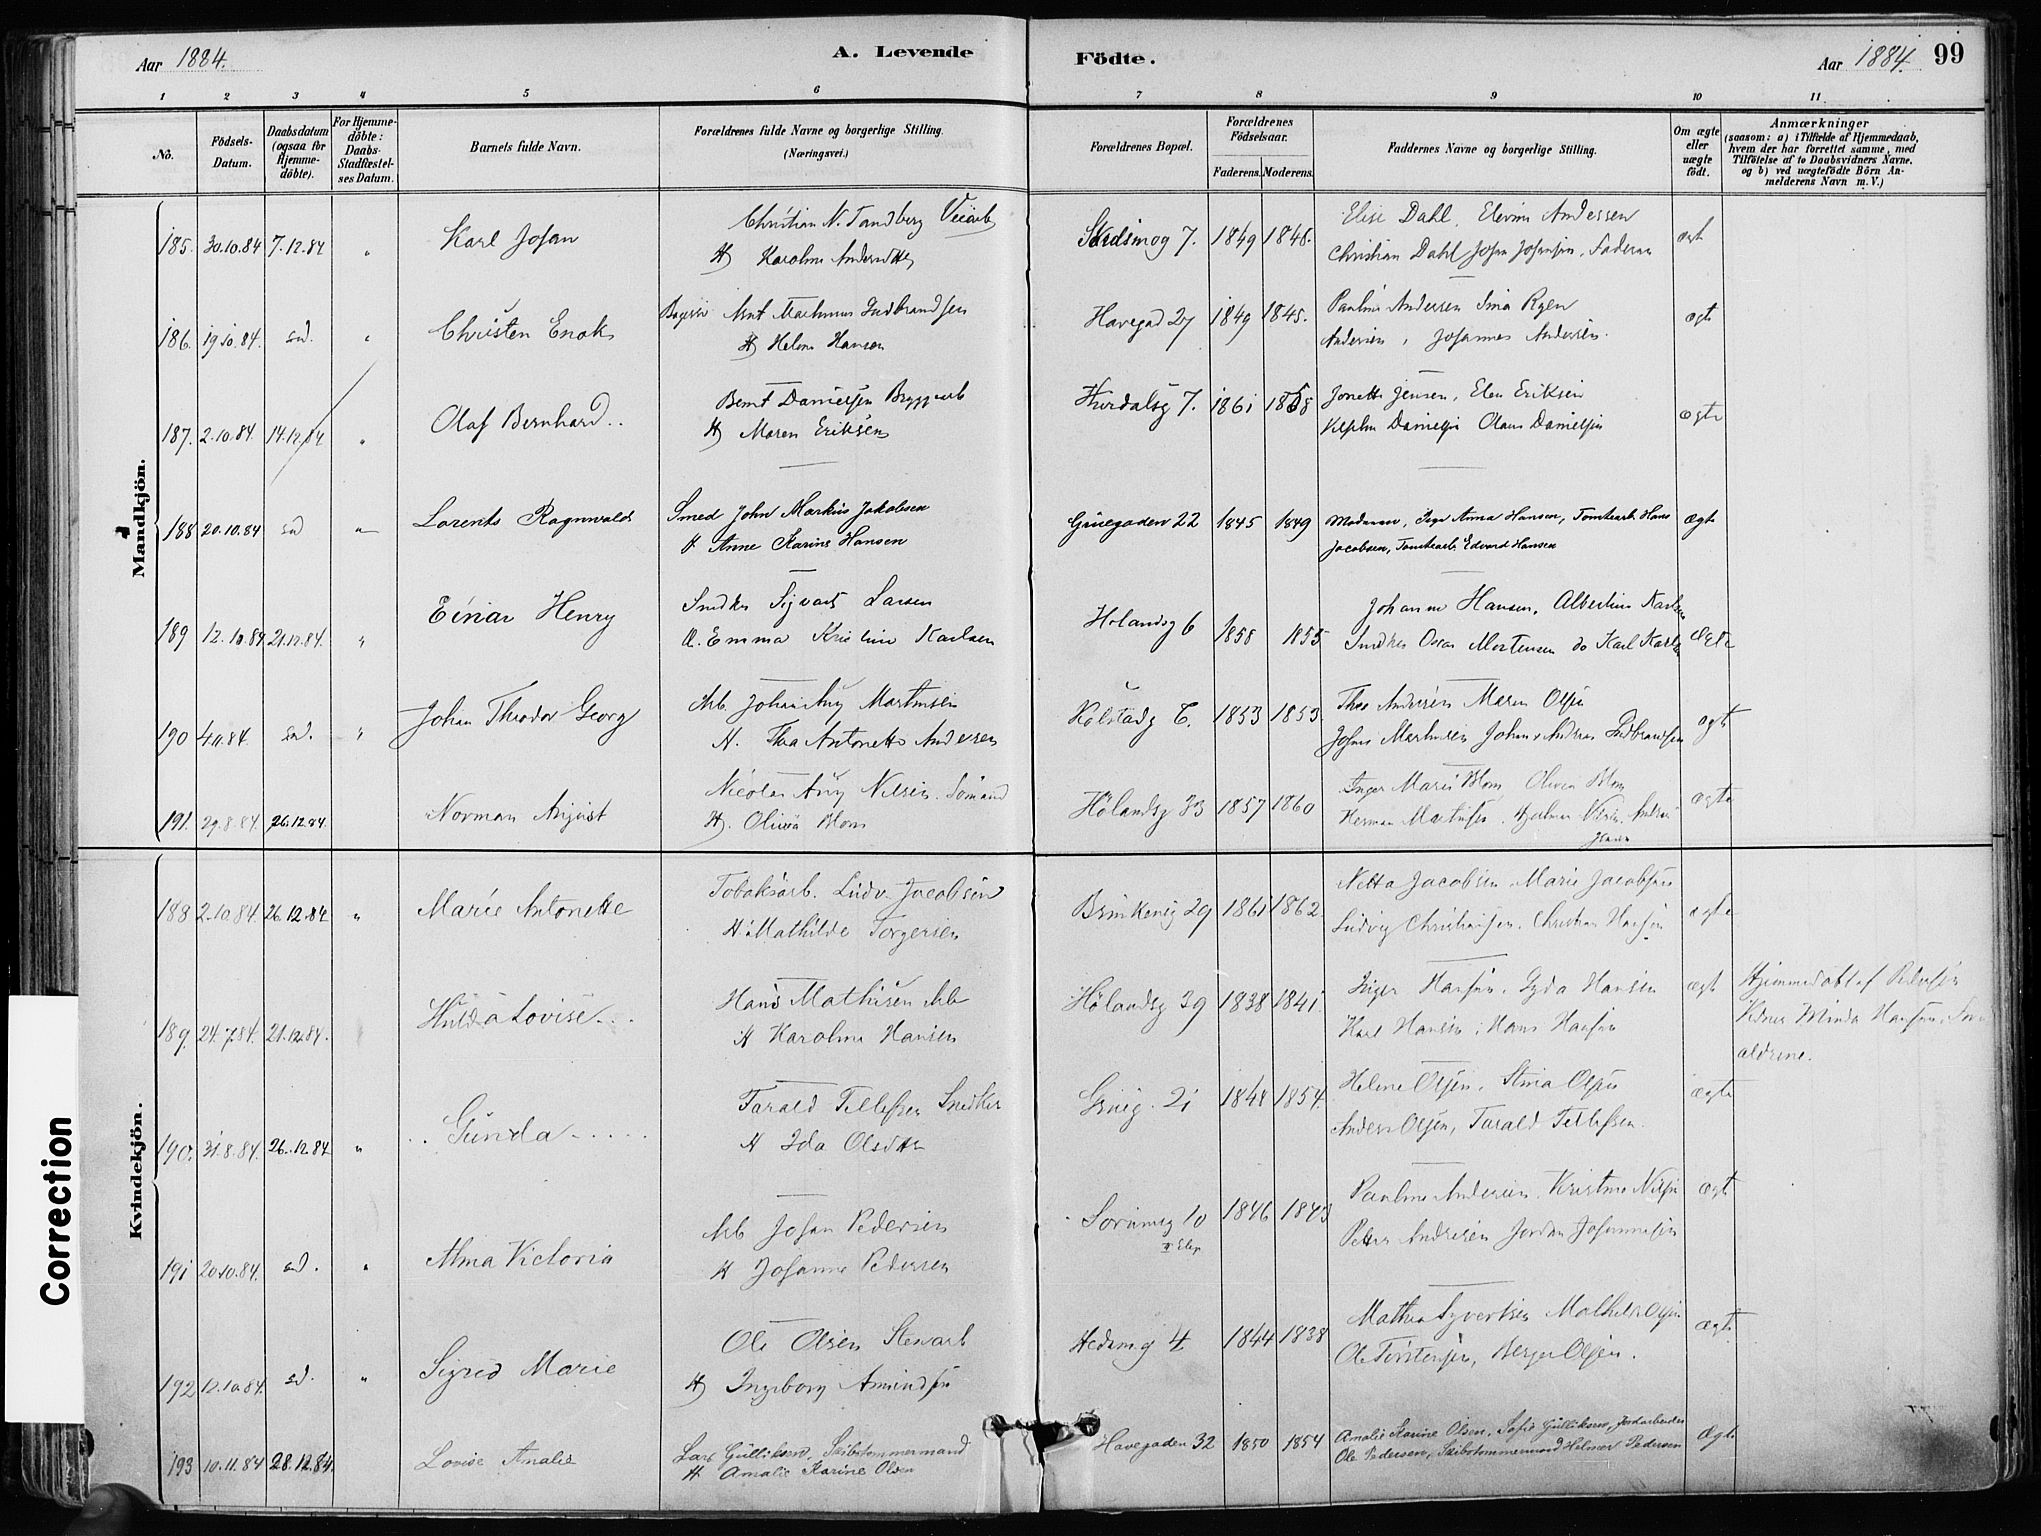 Aar 1884.
A. Levende
Födte.
Aar 1884.
99
1 2 3 4 5 6 7 8 9 10 11
No.
Födsels-
Datum.
Daabsdatum
(ogsaa for
Hjemme-
döbte).
For Hjemme-
döbte:
Daabs-
Stadfæstel-
ses Datum.
Barnets fulde Navn.
Forældrenes fulde Navne og borgerlige Stilling.
(Næringsvei.)
Forældrenes Bopæl.
Forældrenes
Födselsaar.
Faderens. Moderens.
Faddernes Navne og borgerlige Stilling.
Om ægte
eller
uægte
födt.
Anmærkninger
(saasom: a) i Tilfælde af Hjemmedaab,
hvem der har forrettet samme, med
Tilföielse af to Daabsvidners Navne.
og b) ved uægtefödte Börn An-
melderens Navn m. V.)
Mandkjön.
185. 30.10.84 7.12.84 " Karl Johan
Christian N. Tandberg Veiarb
H Karoline
7. 1849 1848.
Elise Dahl,
Christian Dahl Johan Johansen, Faderen
ægt
186. 19.10.84. sd. " Christen Enok
Gudbrandsen
H Helene Hansen
Havegad 27 1849 1845.
Pauline Andersen
Andersen, Johannes Andersen.
ægt
187. 2.10.84. 14.12.84 " Olaf Bernhard..
Bernt Danielsen Bryggearb
H Maren Eriksen
Hurdalsg 7. 1861 1858
Jonette Jensen, Elen Eriksen
Danielsen Olaus Danielsen
ægte
188 20.10.84 sd " Lorents Ragnwald
Smed John Markus Jakobsen
H. Anne Karine Hansen
Grüegaden 22 1845 1849
Moderen, Inge Anna Hansen, Tomtearb. Hans
Jacobsen, Tomtearb. Edvard Hansen
Ægte
189 12.10.84 21.12.84. " Einar Henry
Snedker Sigvart Larsen
H. Emma Kristine Karlsen
Hølandsg 6 1858 1855
Johanne Hansen, Albertine Karlsen
Snedker Oscar Mortensen do Karl Karlsen
Ægte
190 4.11.84. sd. " Johan Theodor Georg
Arb. Johan Aug Martinsen
H. Thea Antonette Andersen
6. 1853 1853.
Thea Andersen Maren Olsen
Martinsen Johan
ægte
191. 29.8.84. 26.12.84. Norman August
Nicolai Aug Nilsen. Sömand
H. Olivia Blom
Hölandsg 33 1857 1860
Inger Marie Blom Olivia Blom
Herman Martinsen. Hjalmar Nilsen.
ægte
Kvindekjön.
188 2.10.84. 26.12.84 " Marie Antonette
Tobaksarb. Ludv. Jacobsen
H. Mathilde Torgersen
Brinkenig 29 1861 1862.
Netta Jacobsen, Marie Jacobsen
Ludvig Christiansen. Christian Hansen
ægte
189. 24.7.84. 21.12.84. Hulda Lovise...
Hans Mathisen Arb
H Karoline Hansen
Hölandsg 39 1838 1841.
Inger Hansen. Lyda Hansen
Karl Hansen, Hans Hansen
ægt
Hjemmedöbt af
Minda Hansen,
ældrene.
190. 31.8.84. 26.12.84 " .. Gunda .....
Tarald Tellefsen Snedker
H Ida Olsdtr
Grüeg. 21 1848 1854.
Helene Olsen, Stina Olsen
Anders Olsen, Tarald Tellefsen.
ægte
191 20.10.84. sd. " Alma Victoria
Arb Johan Pedersen
H Johanne Pedersen
Sörumsg 10 1846 1843
Pauline Andersen. Kristine Nilsen
Peter Andersen Jordan Johannesen
Ægte
192 12.10.84. sd. " Sigrid Marie
Ole Olsen Stenarb
H Ingeborg Amundsen
Hedemg 4 1844 1838
Mathea Syvertsen Mathilde Olsen
Ole Torstensen, Berger Olsen.
ægte
193 10.11.84 28.12.84. Lovise Amalie
Lars Gulliksen, Skibstømmermand
H. Amalie Karine Olsen
Havegaden 32 1850 1854
Amalie Karine Olsen, Sofie Gulliksen, Jordarbeider
Ole Pedersen, Skibstømmermand Helmer Pedersen
Ægte
Correction